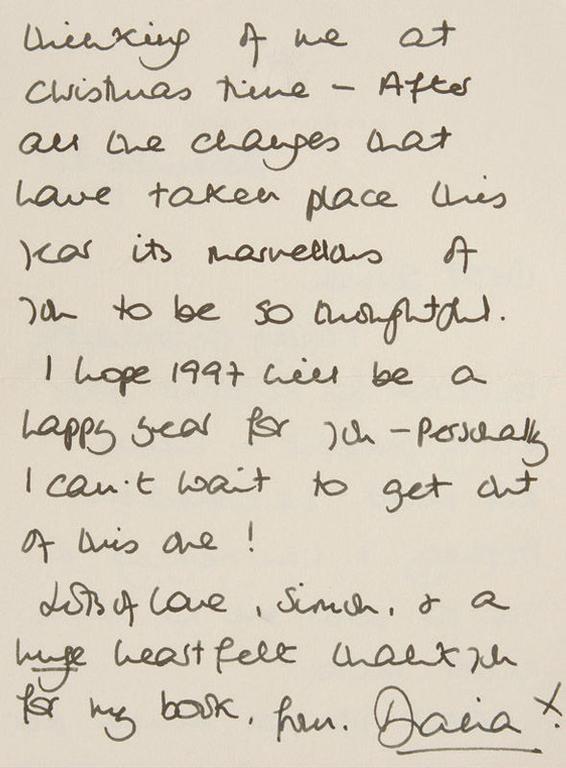 thinking of me at
Christmas time – After
all the changes that
have taken place this
year its marvellous of
you to be so thoughtful.
I hope 1997 will be a
happy year for you – personally
I can't wait to get out
of this one!
Lots of love, Simon, & a
huge heartfelt thank you
for my book, from. Diana x.